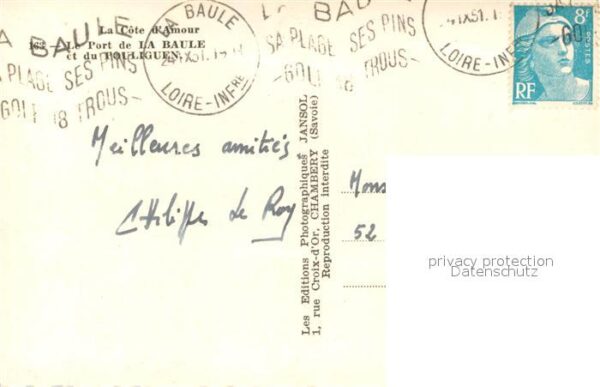 La Côte d'Amour
162 — Le Port de LA BAULE
et du POULIGUEN
LA BAULE
SA PLAGE SES PINS
GOLF 18 TROUS
LA BAULE
LOIRE-INFRE
LA BAULE
SA PLAGE SES PINS
— GOLF 18 TROUS —
LOIRE-INFRE
8F
POSTES
RF
Meilleures amitiés
Philippe Le Roy
Les Editions Photographiques JANSOL
1, rue Croix-d'Or, CHAMBERY (Savoie)
Reproduction interdite
Mons
52
privacy protection
Datenschutz